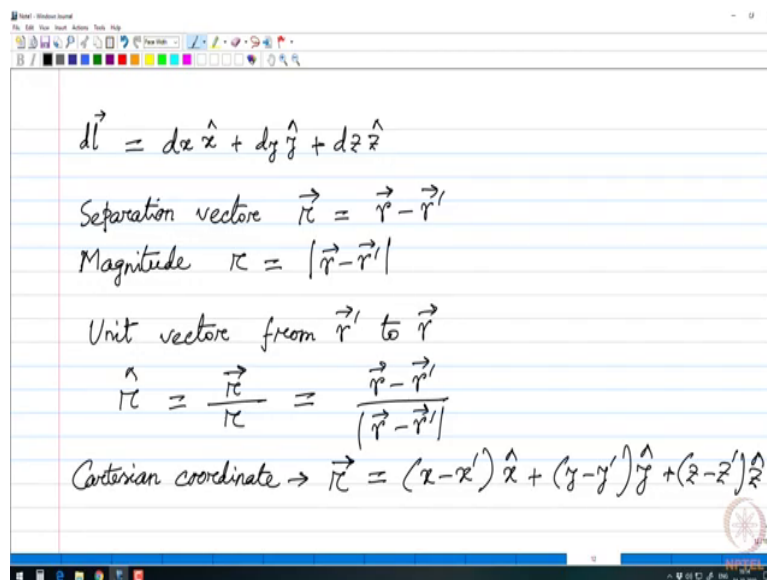 Note1 - Windows Journal
File Edit View Insert Actions Tools Help
Page Width
B I
dl⃗ = dx x̂ + dy ŷ + dz ẑ
Separation vectore 𝓇⃗ = r⃗ - r⃗′
Magnitude 𝓇 = |r⃗ - r⃗′|
Unit vectore from r⃗′ to r⃗
𝓇̂ = 𝓇⃗/𝓇 = (r⃗ - r⃗′)/|r⃗ - r⃗′|
Cartesian coordinate → 𝓇⃗ = (x-x′) x̂ + (y-y′) ŷ + (z-z′) ẑ
NPTEL
12
ENG